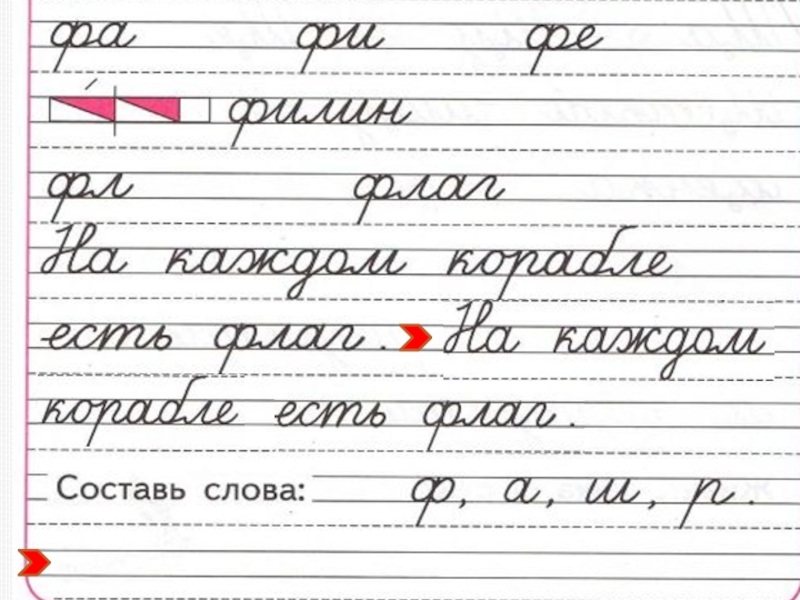 фа фи фе
филин
фл флаг
На каждом корабле
есть флаг. На каждом
корабле есть флаг.
Составь слова: ф, а, ш, р.